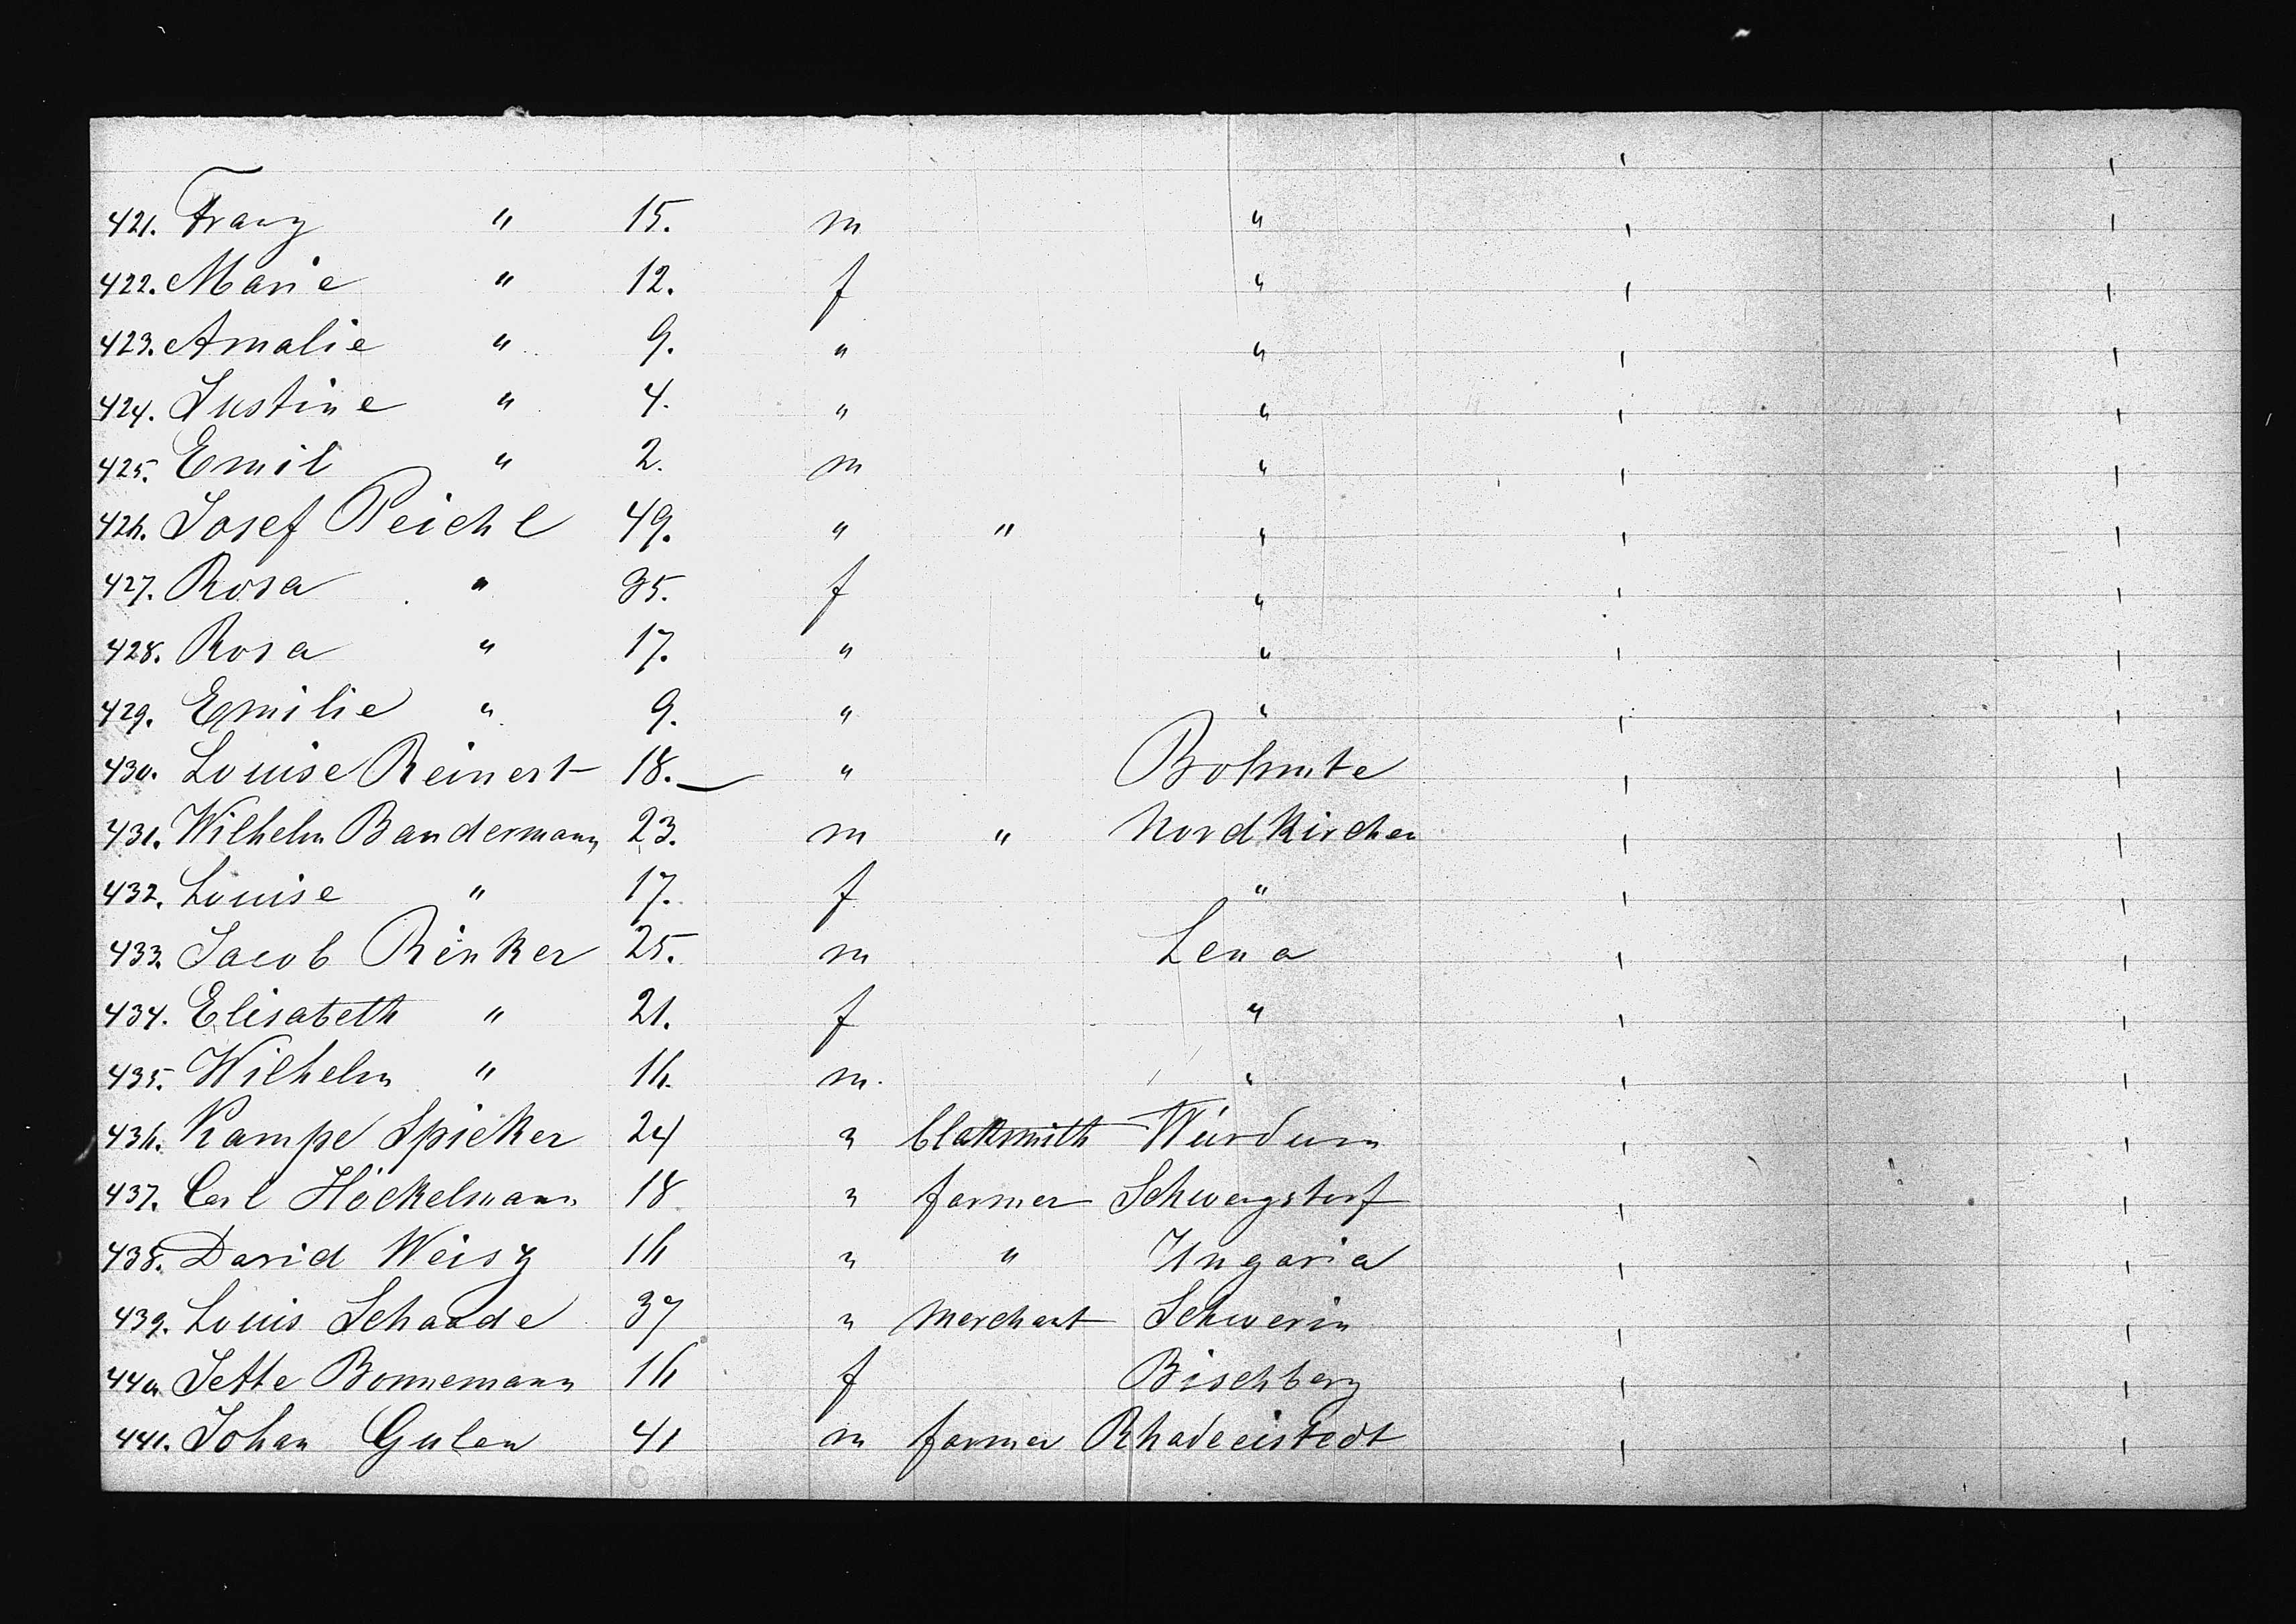 421. Franz " 15. m "
422. Marie " 12. f "
423. Amalie " 9. " "
424. Justine " 4. " "
425. Emil " 2. m "
426. Josef Peichl 49. " " "
427. Rosa " 35. f "
428. Rosa " 17. " "
429. Emilie " 9. " "
430. Louise Reinert 18. " Bohmte
431. Wilhelm Bandermann 23. m " Nordkirchen
432. Louise " 17. f "
433. Jacob Rinker 25. m Lena
434. Elisabeth " 21. f "
435. Wilhelm " 16. m "
436. Kampe Spieker 24 " blaksmith Würdum
437. Carl Höckelmann 18 " farmer Schwagstorf
438. David Weisz 16 " " Ungaria
439. Louis Schaade 37 " merchant Schwerin
440. Jette Bonnemann 16 f Bischberg
441. Johan Gulen 41 m farmer